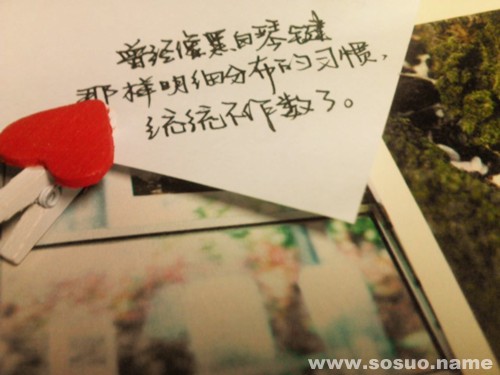 曾经像黑白琴键
那样明细分布的习惯，
统统不作数了。
www.sosuo.name